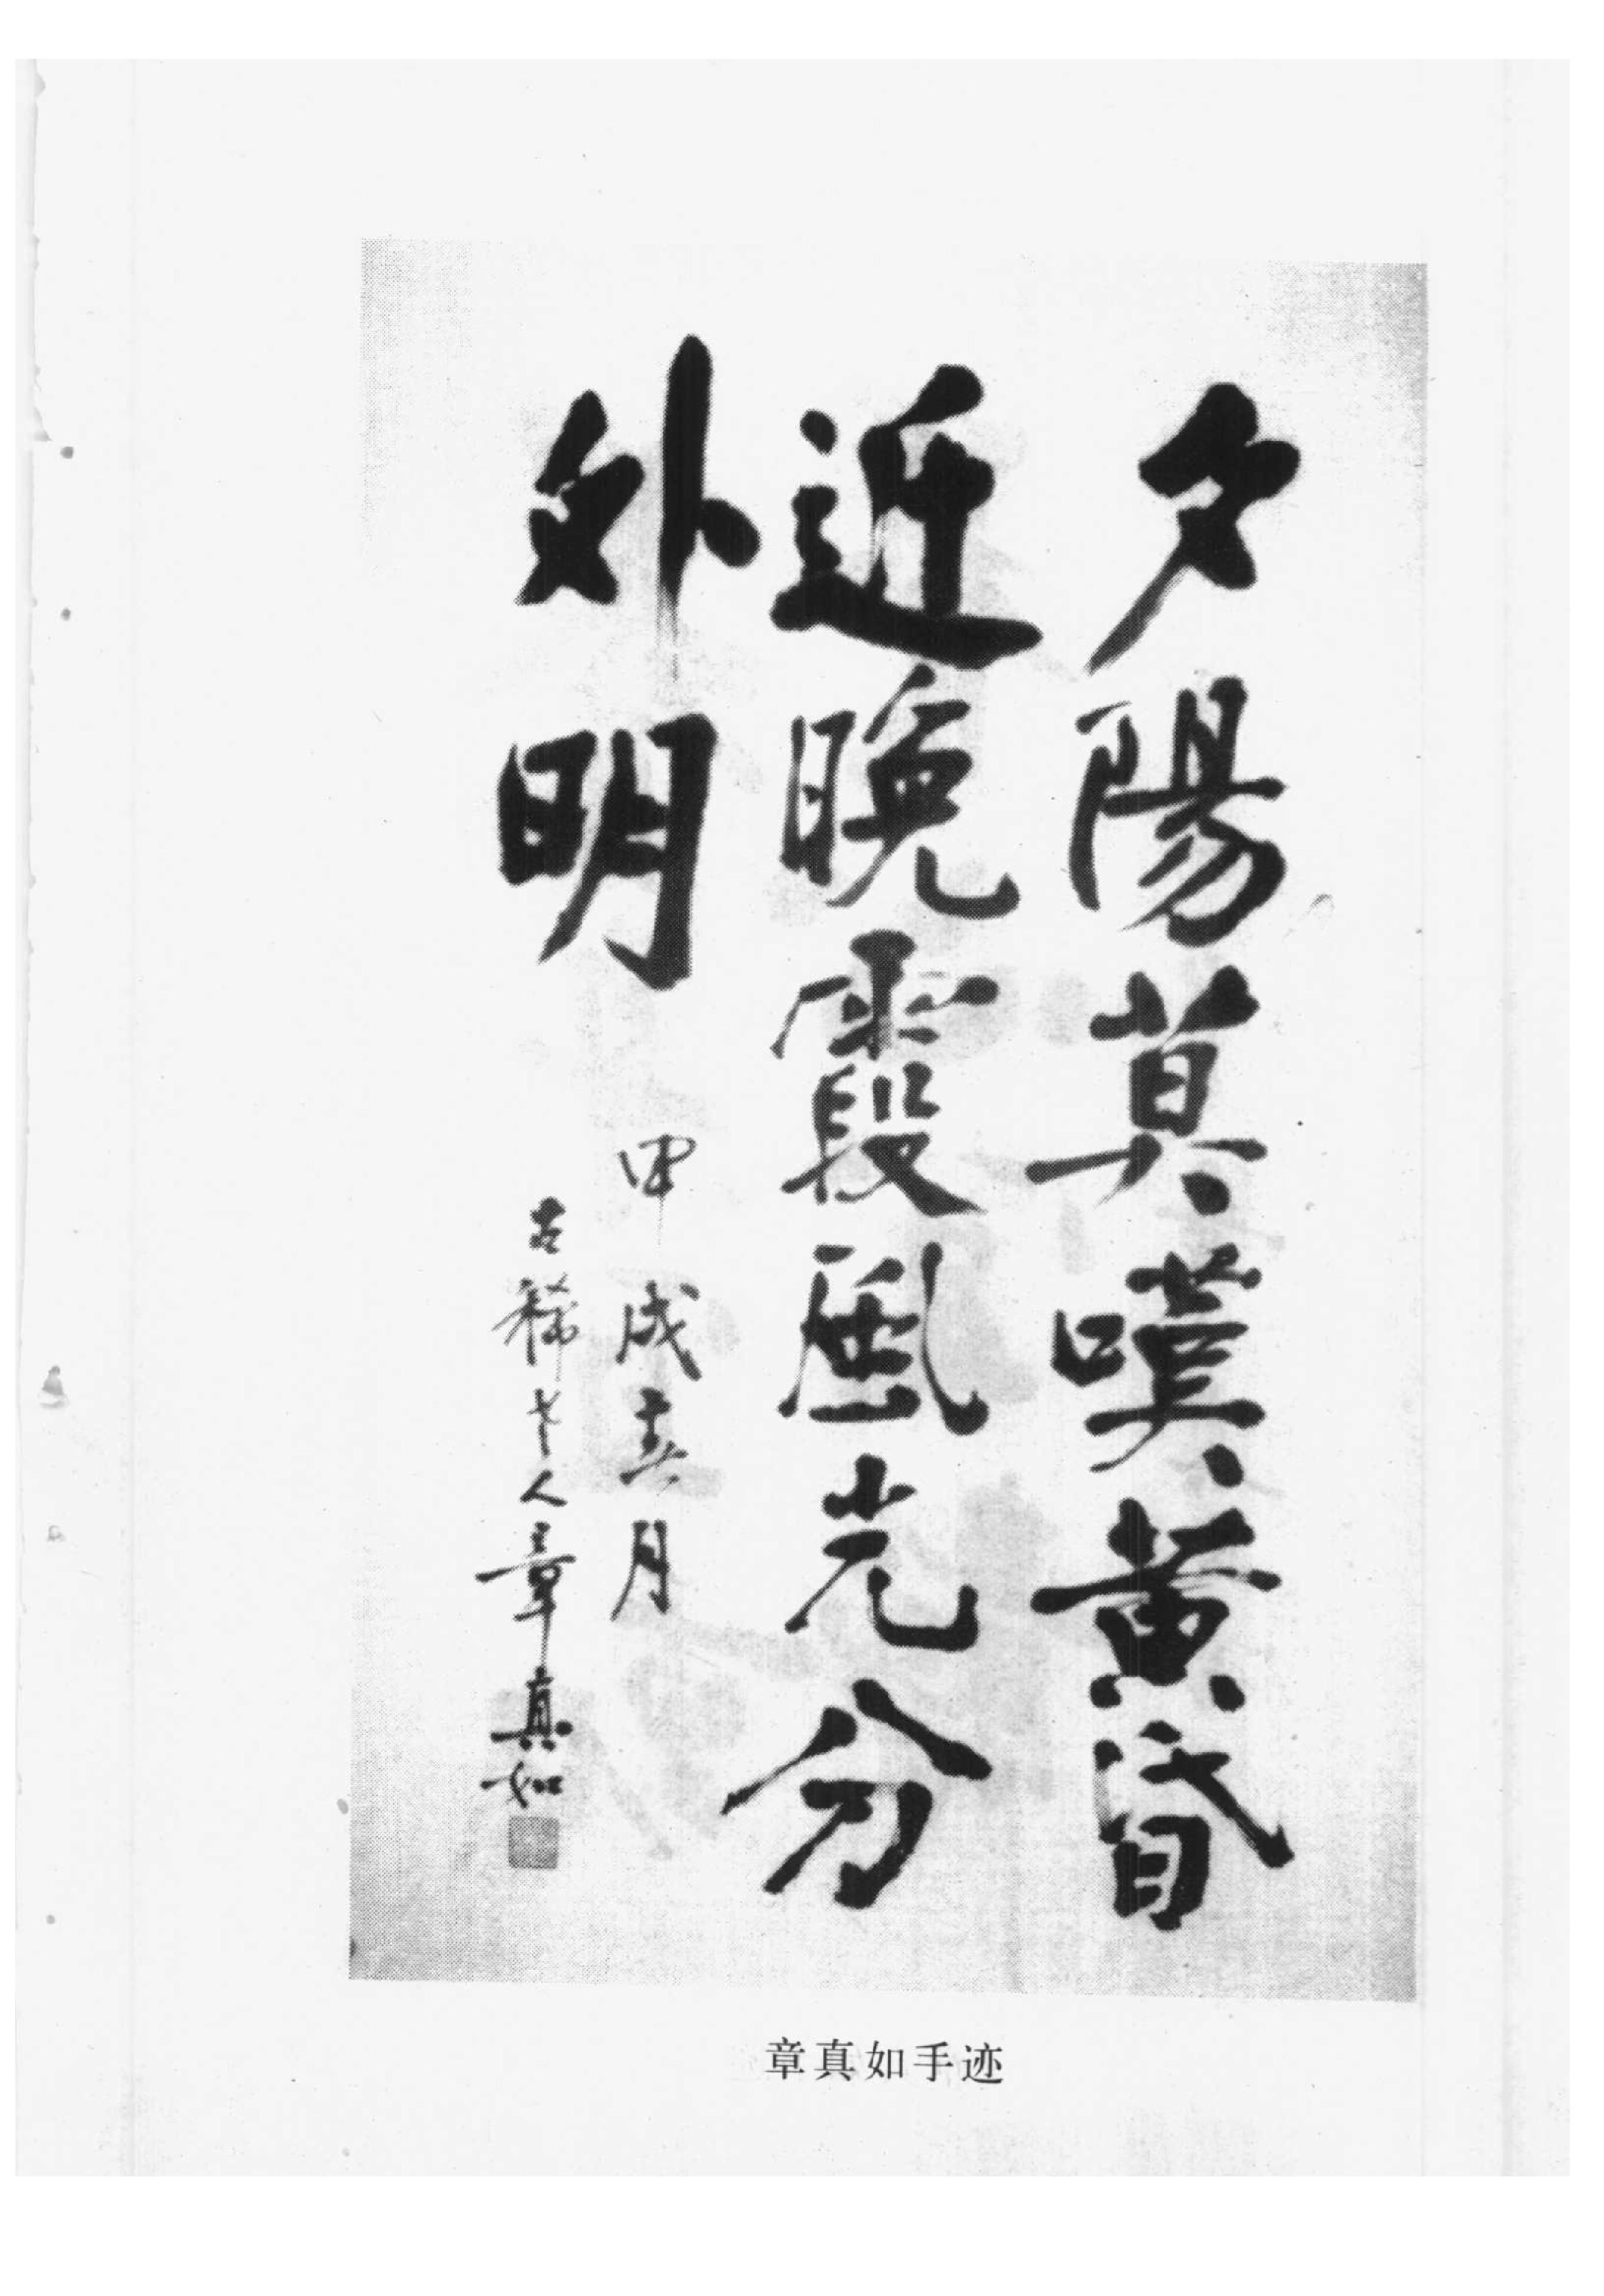 夕陽莫嘆黄昏
近晚霞風光分
外明
甲戌春月
古稀老人章真如
章真如手迹